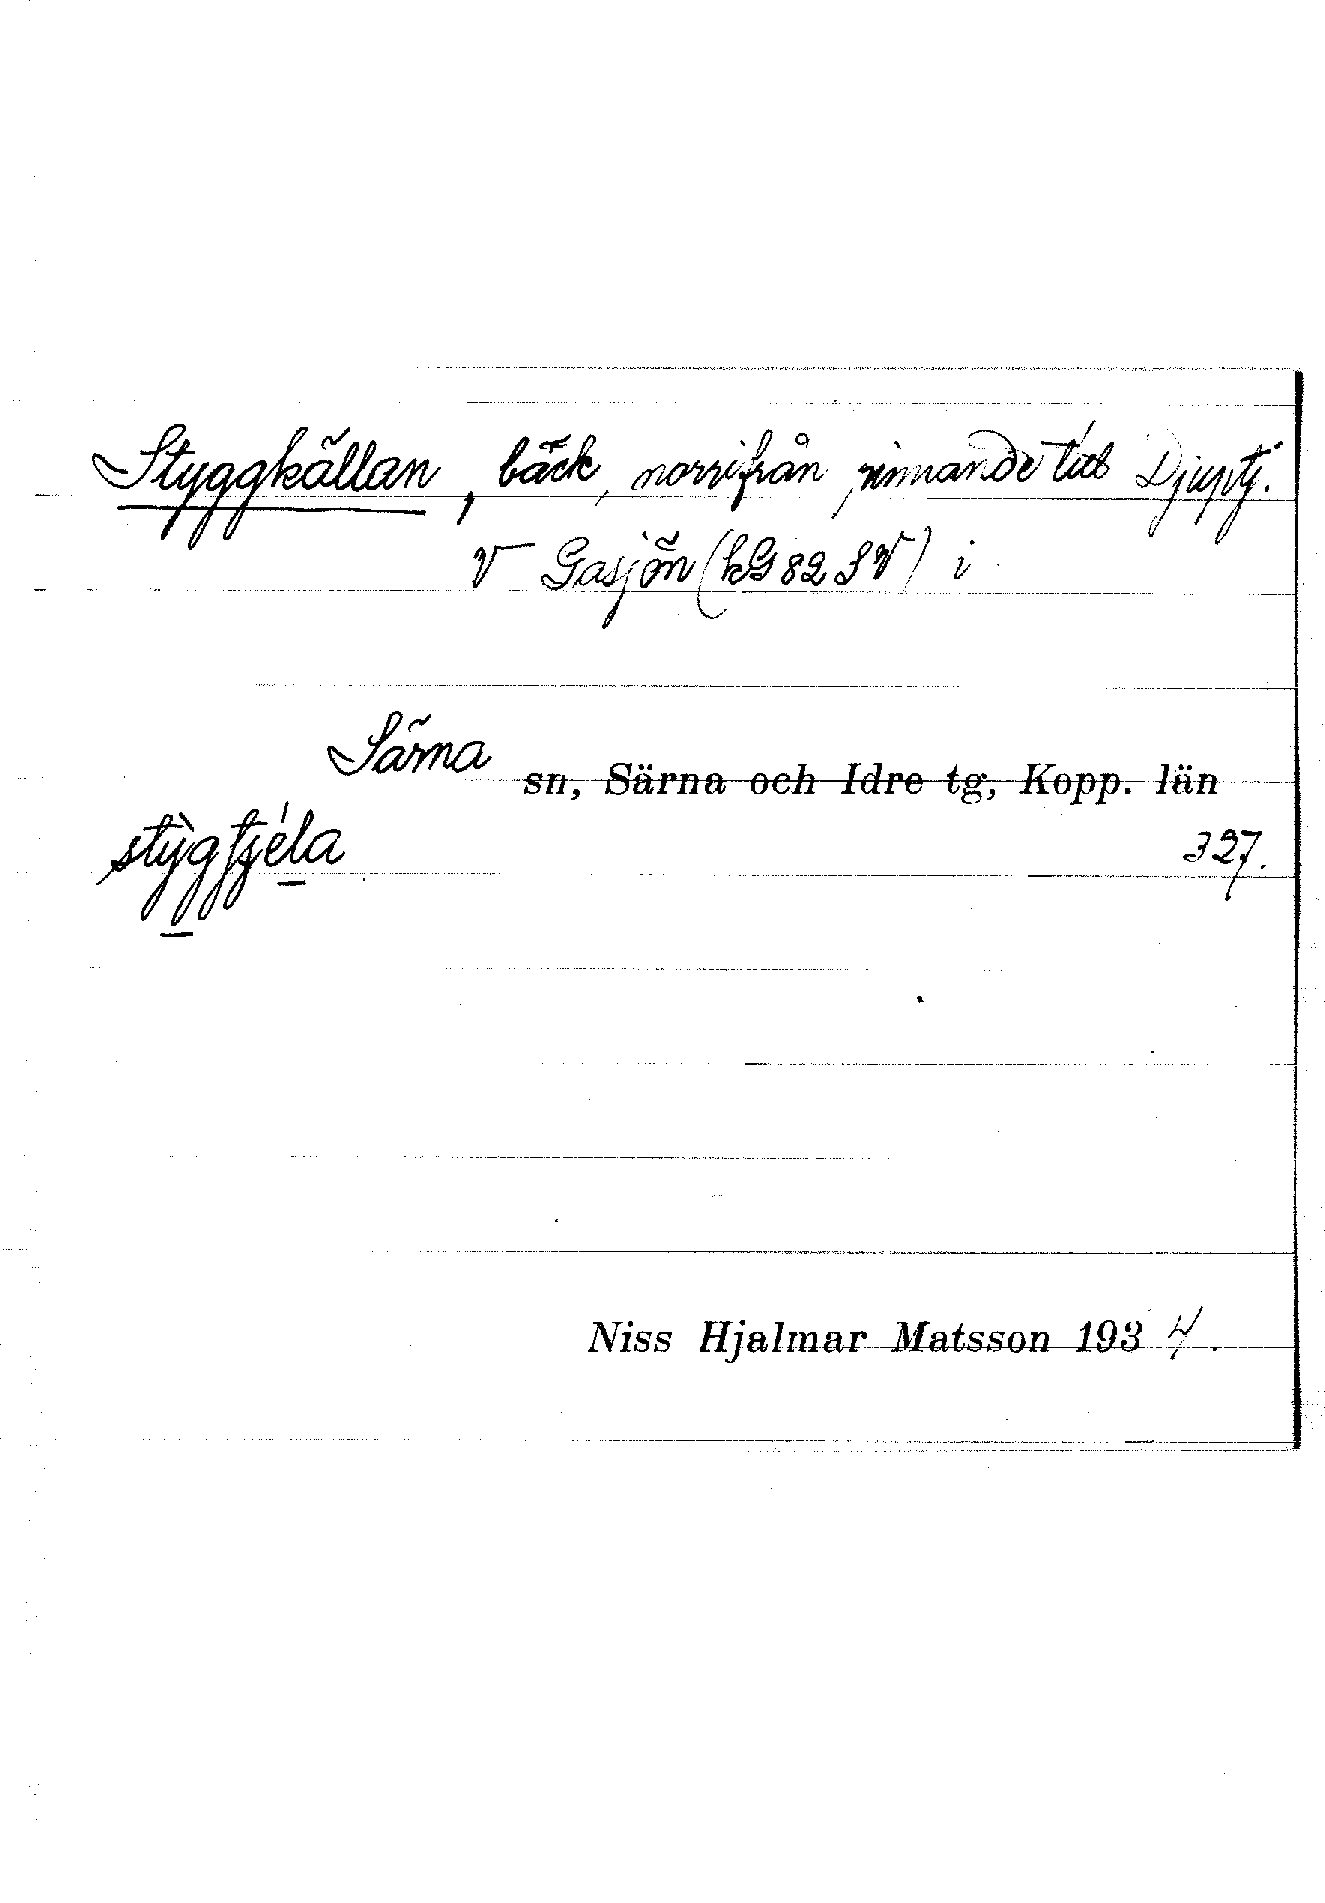 Styggkällan, bäck, norrifrån rinnande till Djuptj.
V Gasjön (kG 82 SV) i
Särna sn, Särna och Idre tg, Kopp. län
stỳgtjéla 327.
Niss Hjalmar Matsson 1934.